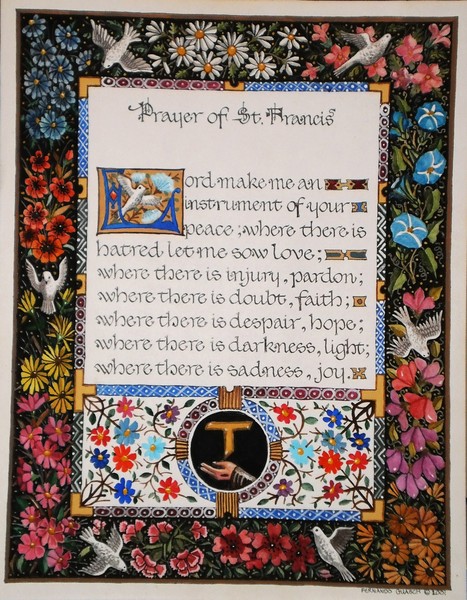 Prayer of St. Francis
Lord make me an
instrument of your
peace ; where there is
hatred let me sow love ;
where there is injury, pardon ;
where there is doubt, faith ;
where there is despair, hope ;
where there is darkness, light;
where there is sadness, joy.
T
FERNANDO GUARCH © 2001